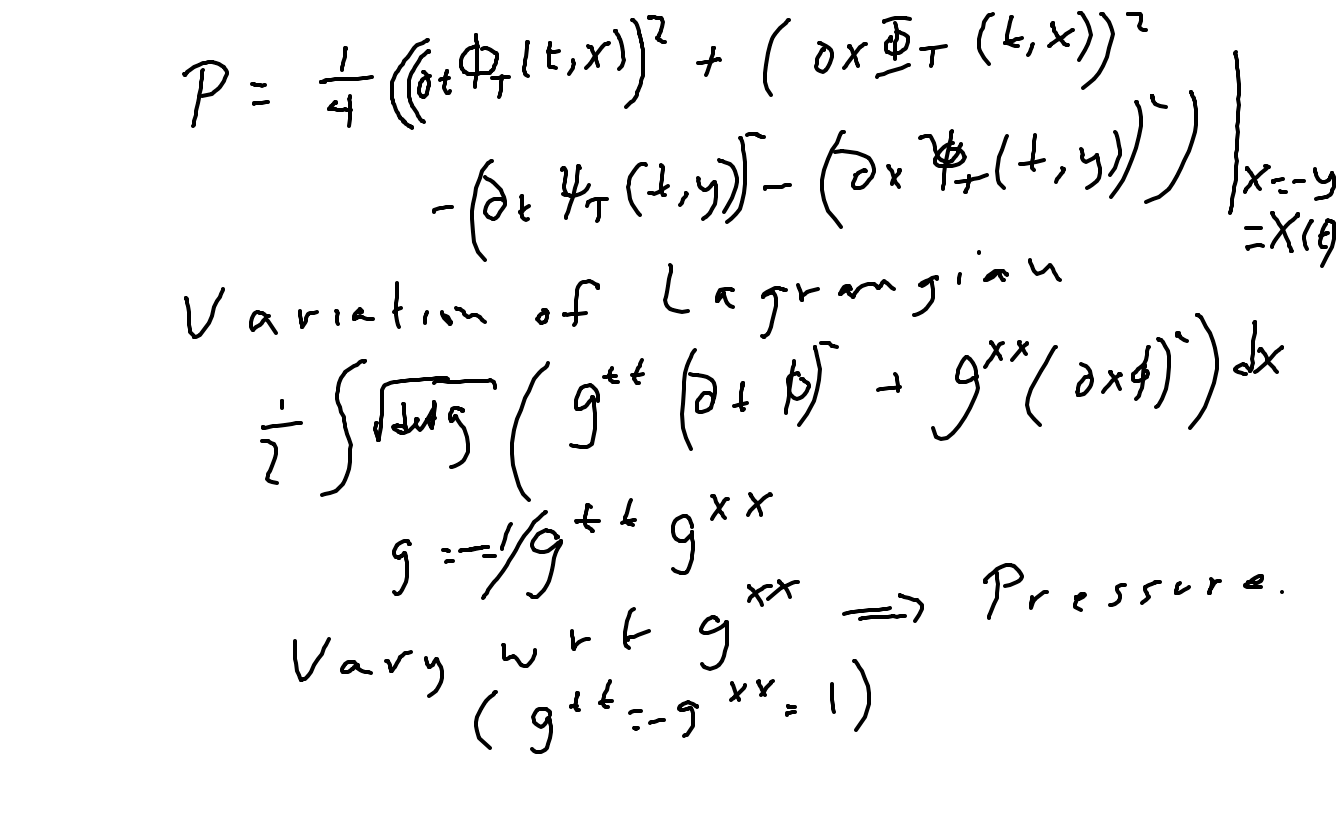 P = 1/4 ((∂t Φ_T(t,x))² + (∂x Φ_T (t,x))²
-(∂t ψ_T (t,y))² - (∂x ψ_T (t,y))²) |x=-y =X(t)
Variation of Lagrangian
1/2 ∫ √det g ( g^tt (∂t ϕ)² + g^xx (∂x ϕ)² ) dx
g = -1/g^tt g^xx
Vary wrt g^xx ⟹ Pressure.
( g^tt = -g^xx = 1 )